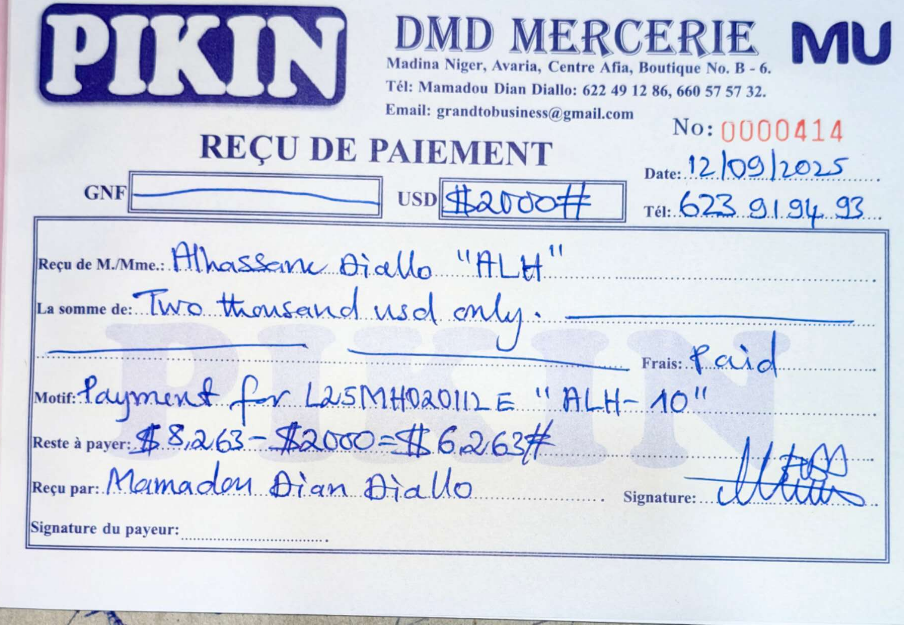 PIKIN
DMD MERCERIE
MU
Madina Niger, Avaria, Centre Afia, Boutique No. B - 6.
Tél: Mamadou Dian Diallo: 622 49 12 86, 660 57 57 32.
Email: grandtobusiness@gmail.com
No: 0000414
REÇU DE PAIEMENT
Date: 12/09/2025
GNF USD #2000#
Tél: 623 91 94 93
Reçu de M./Mme.: Alhassane Diallo "ALH"
La somme de: Two thousand usd only.
Frais: Paid
Motif: Payment for L25MH02011LE "ALH-10"
Reste à payer: $8,263-$2000=$6,263#
Reçu par: Mamadou Dian Diallo
Signature:
Signature du payeur:
PIKIN